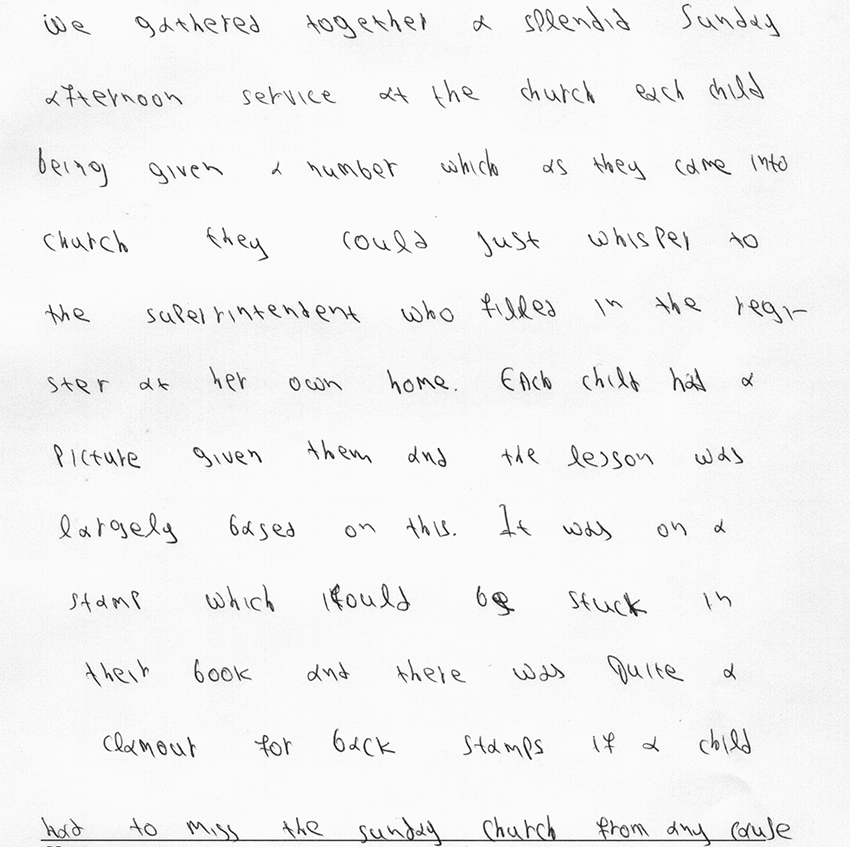 We gathered together a splendid Sunday
afternoon service at the church each child
being given a number which as they came into
church they could just whisper to
the superrintendent who filled in the regi-
ster at her own home. Each child had a
picture given them and the lesson was
largely based on this. It was on a
stamp which could be stuck in
their book and there was quite a
clamour for back stamps if a child
had to miss the sunday church from any cause